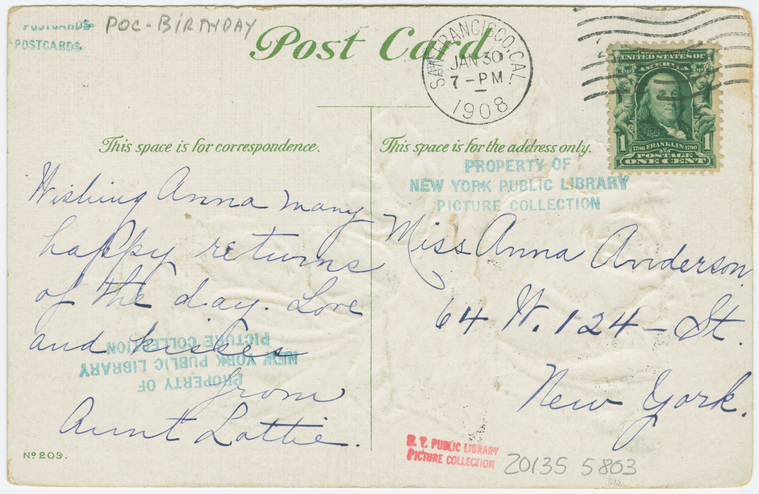 POSTCARDS
POSTCARDS
POC-BIRTHDAY
Post Card
SAN FRANCISCO, CAL.
JAN 30
7-PM
1908
UNITED STATES OF
AMERICA
1 1706 FRANKLIN 1790 1
POSTAGE
ONE CENT
This space is for correspondence.
This space is for the address only.
PROPERTY OF
NEW YORK PUBLIC LIBRARY
PICTURE COLLECTION
Wishing Anna many
happy returns
of the day. Love
and kisses
from
Aunt Lottie.
Miss Anna Anderson.
64 W. 124 - St.
New York.
PROPERTY OF
NEW YORK PUBLIC LIBRARY
PICTURE COLLECTION
Nº 209.
N. Y. PUBLIC LIBRARY
PICTURE COLLECTION
20135 5803